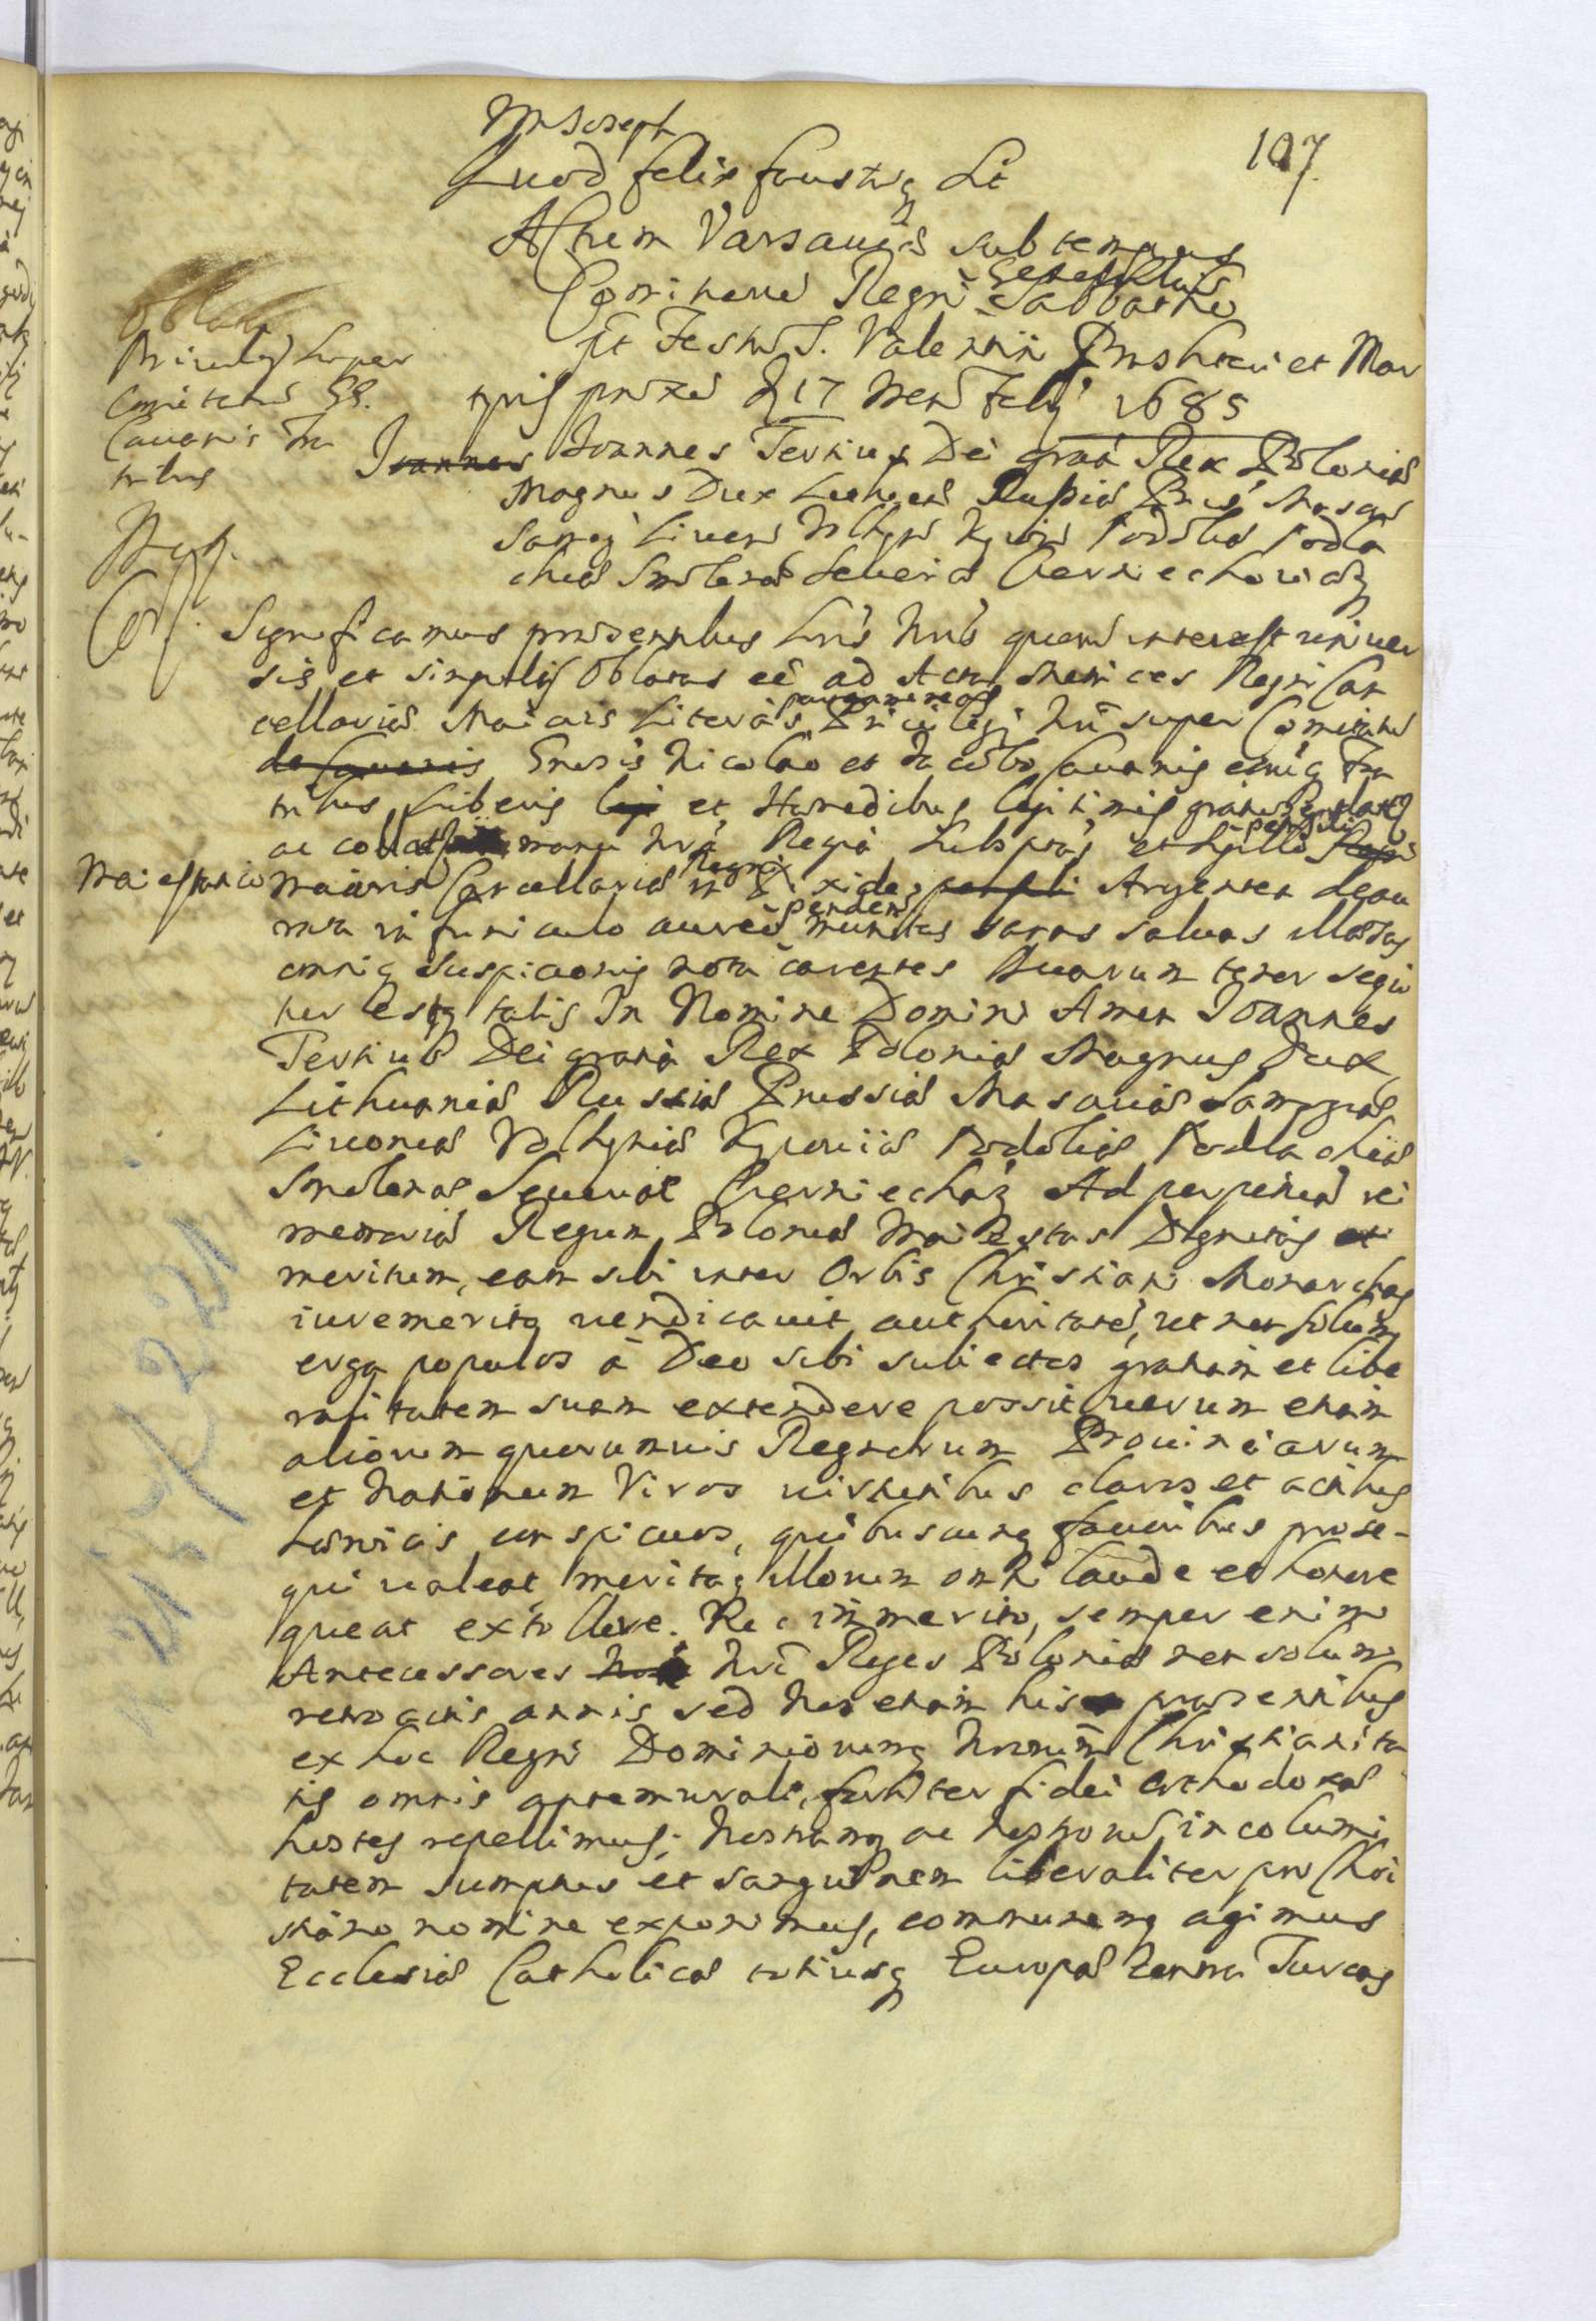 M Joseph
107
Quod felix faustq sit
Actum Varsaviæ sub tempus
Comitiorū Regni Generaliū Sabbatho
pt Festū S. Valentini Prsbteri et Mar
tyris prox̄ d 17 Mens Febry 1685
Oblata
Privilegy super
Comitatū GG.
Cavanis Fra
tribus
Joannes Joannes Tertius Dei gratā Rex Poloniæ
Magnus Dux Lithuaæ Russiæ Prus̄ Masow
Samog Livon Volhyn Kyiow Podoliæ Podla
chiæ Smolens Severiæ Czerniechoviæq
Significamus præsentibus Lris Nris quorū interest univer
sis et singulis Oblatas eē ad Acta Metrices Regni Can
cellariæ Maioris Literas pargameneas Privilegy Nri super Comitatū
de Cavanis Gnrosis Nicolao et Jacobo Cavanis eiusq Fra
tribus Liberis legi et Hæredibus legitimis gratiose
ac collat manu Nrā Regiā Subscptas et sigillo pensili
Maiestatico maioris Cancellariæ Regni in Pixide pensili Argentea deau
rata in funiculo aureo pendenti munitas sanas salvas illæsas
omniq suspicionis nota carentes Quarum tenor sequi
tur estq talis In Nomine Domini Amen Joannes
Tertius Dei gratiā Rex Poloniæ Magnus Dux
Lithuaniæ Russiæ Prussiæ Masoviæ Samogitiæ
Livoniæ Volhyniæ Kyioviæ Podoliæ Podlachiæ
Smolensæ Severiæ Czerniechōq Ad perpetuā rei
memoriā Regum Poloniæ Maiestas Dignitas et
meritum, eam sibi inter Orbis Christiani Monarchas
iuremerito vendicavit authoritatē, ut non solum
erga populos à Deo sibi subiectos gratiam et libe
ralitatem suam extendere possit verum etiam
aliorum quorumvis Regnorum Provinciarum
et Nationum Viros virtutibus claros et actibus
heroicis conspicuos, quibuscunq favoribus prose-
qui valeat meritaq illorum omni laude et honore
queat extollere. Nec immerito, semper enim
Antecessores Nri Reges Poloniæ non solum
retroactis annis sed nos etiam his præsentibus
ex hoc Regni Dominiorumq Nrorum Christianita
tis omnis antemurali, fortiter fidei orthodoxæ
hostes repellimus; Nostramq ac nostrorū incolumi
tatem sumptus et sanguinem liberaliter pro Chri
stiano nomine exponimus, communemq agimus
Ecclesiæ Catholicæ totiusq Europæ contra Turcas